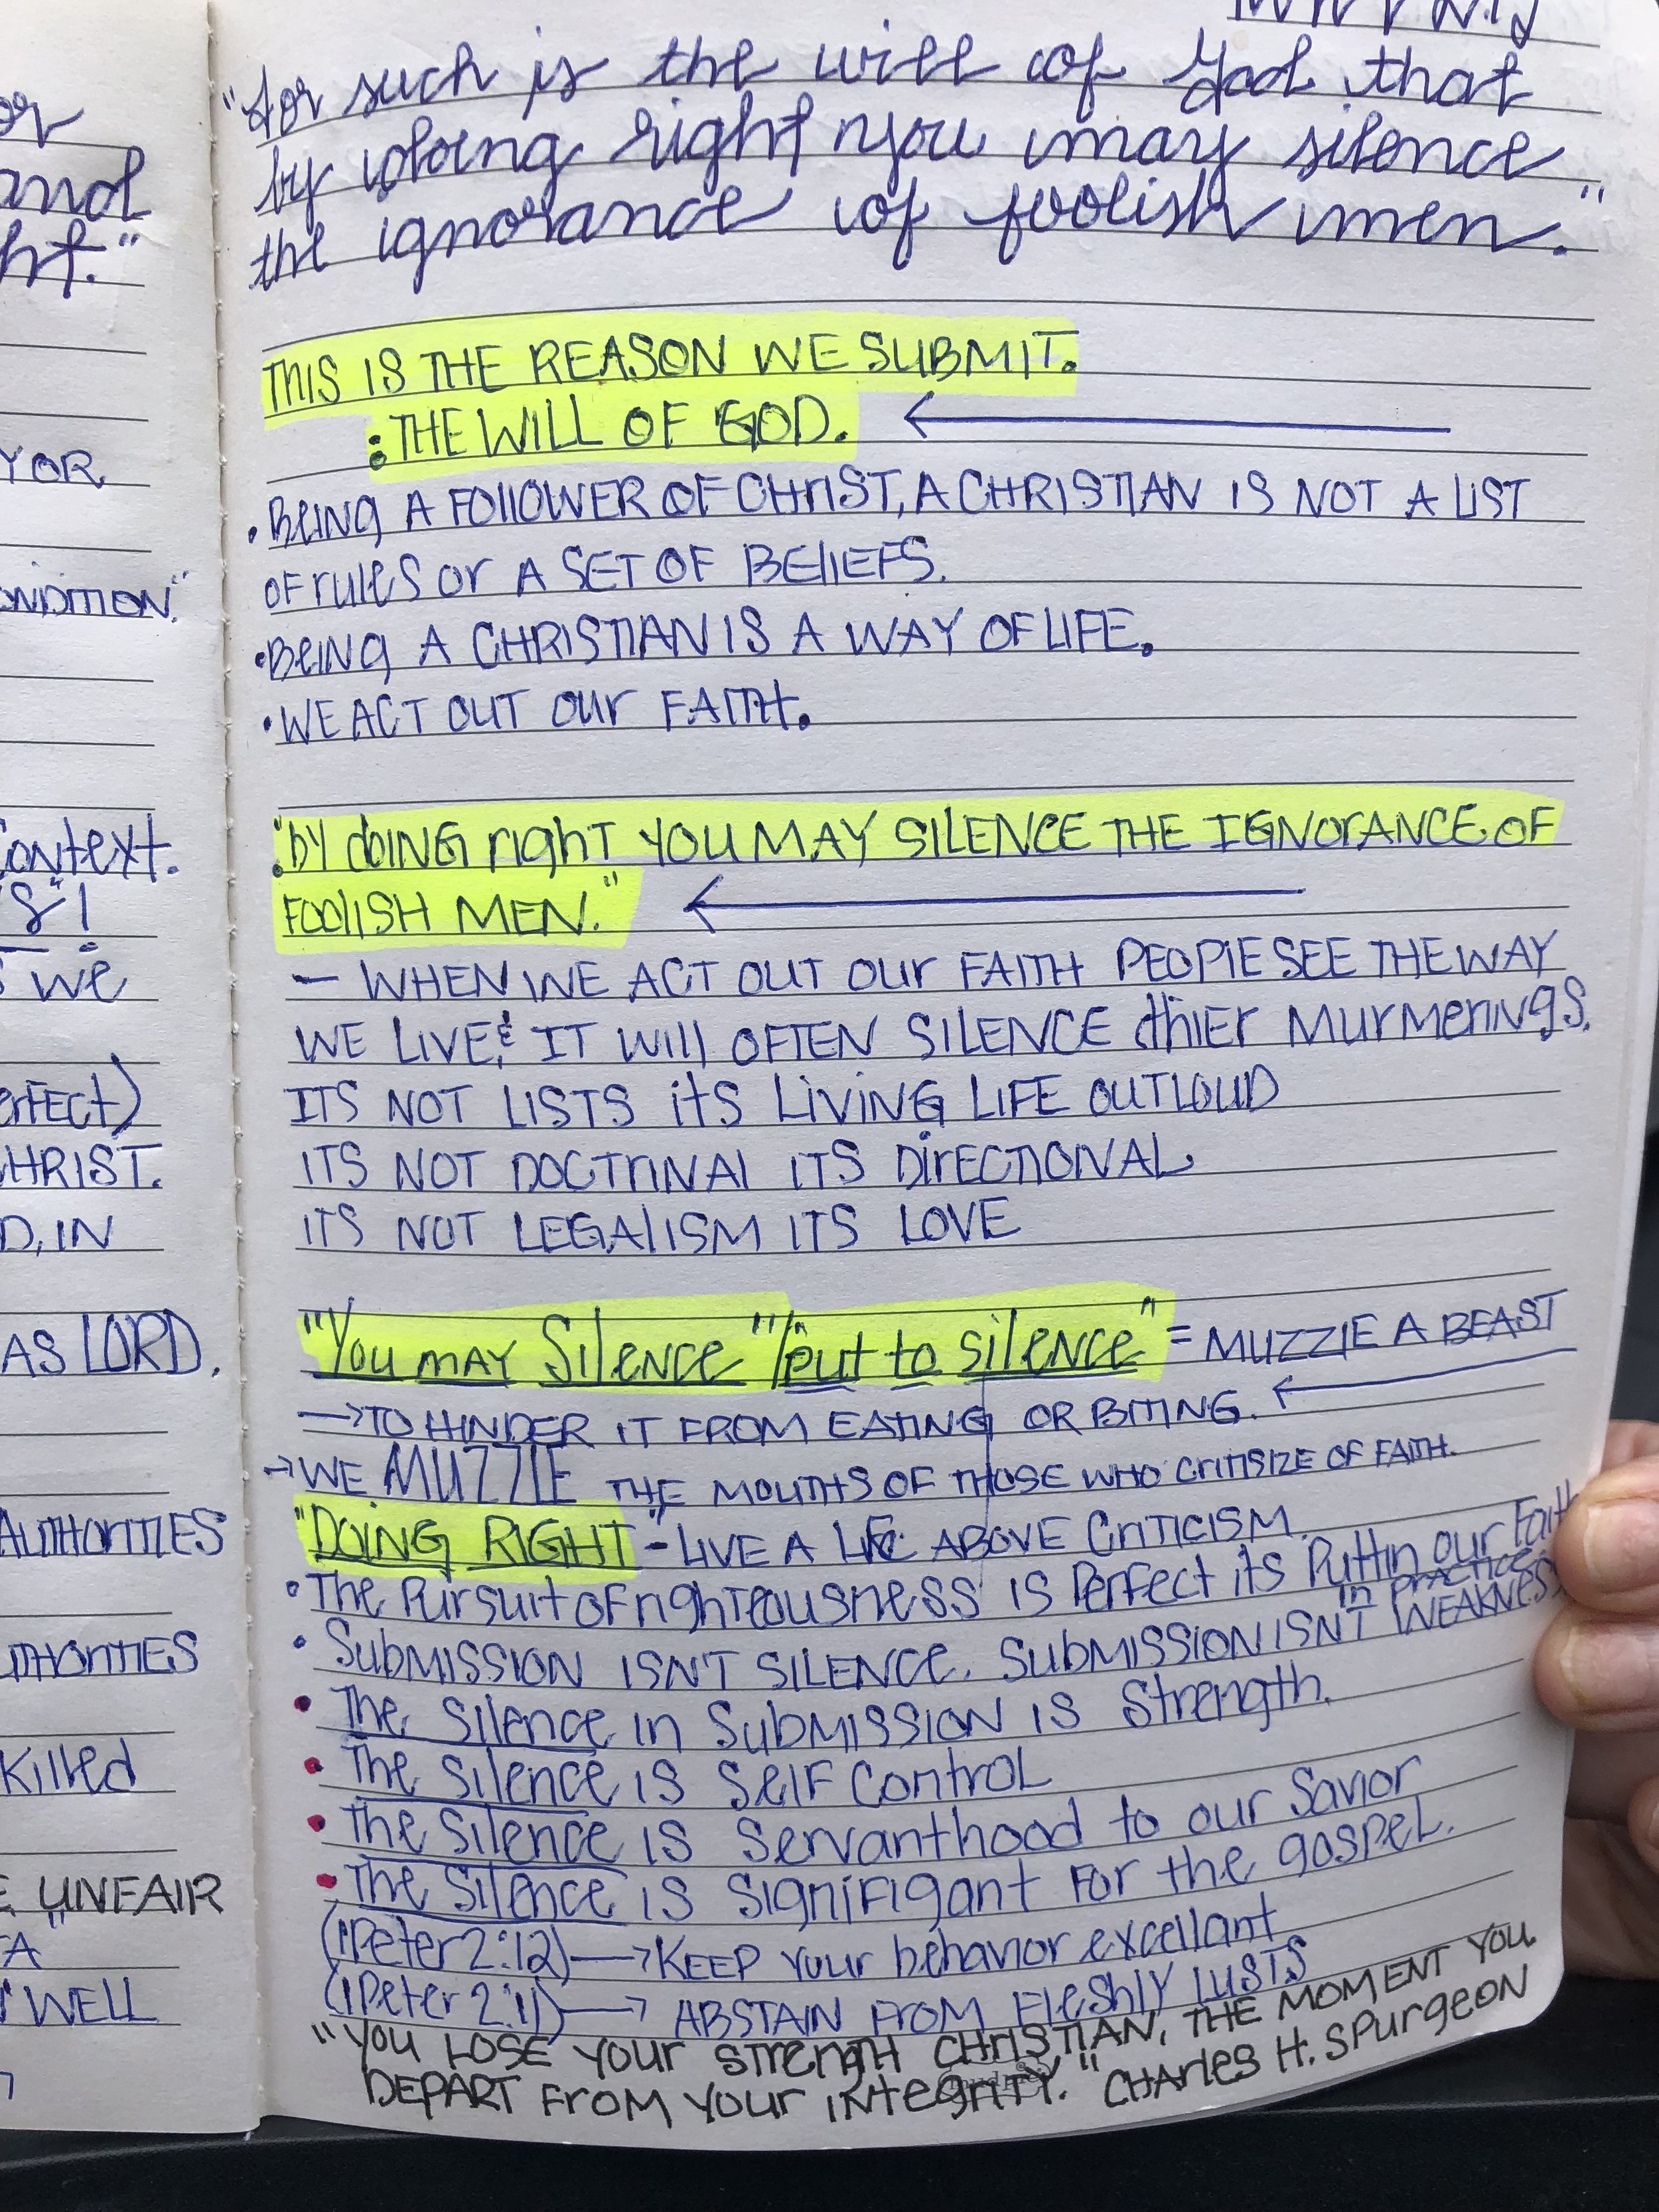 "for such is the will of God that
by doing right you may silence
the ignorance of foolish men."
THIS IS THE REASON WE SUBMIT.
: THE WILL OF GOD.
• BEING A FOLLOWER OF CHRIST, A CHRISTIAN IS NOT A LIST
OF rules or A SET OF BELIEFS.
• BEING A CHRISTIAN IS A WAY OF LIFE.
• WE ACT OUT OUr FAITH.
"by doING righT YOU MAY SILENCE THE IGNOrANCE OF
FOOlISH MEN."
— WHEN WE ACT OUT OUr FAITH PEOPlE SEE THE WAY
WE LIVE, & IT Will OFTEN SILENCE thIEr MUrMerINgS.
ITS NOT LISTS itS LiVING LIFE OUTLOUD
ITS NOT DOCTrINAl ITS DirECTIONAL
ITS NOT LEGAlISM ITS LOVE
"You MAY SilENCE" / "put to silENCE" = MUZZlE A BEAST
→ TO HINDER IT FROM EATING OR BITING. ←
→ WE MUZZlE THE MOUTHS OF THOSE WHO CriTISIZE OF FAITH.
"DOING RIGHT" - LIVE A LIFE ABOVE CriTICISM.
• The PursuiT OF righTEousNESS IS PerFect iTs PuTTin our Faith
in PrACTice
• SubMISSION ISN'T SILENCE. SubMISSION ISN'T WEAKNESS
• The SilENCE in SubMISSION IS Strength.
• The SilENCE IS SElF CoNtrol
• The SilENCE IS Servanthood to our Savior
• The SilENCE IS SIgNiFigant For the gospel.
(1 Peter 2:12) → KEEP your behavior excellant
(1 Peter 2:11) → ABSTAIN FROM FlEShlY lUSTS
"YOU LOSE YOUr STrENgTH CHrISTIAN, THE MOMENT YOU
DEPART From YOUr INtegrITY." CHArlES H. SPurgEON
or
and
ht."
YOR
ONDITION."
Context.
S"!
we
erFECt)
HRIST.
D, IN
AS LORD.
AUTHOrITIES
UTHOrITIES
Killed
E UNFAIR
A
WELL